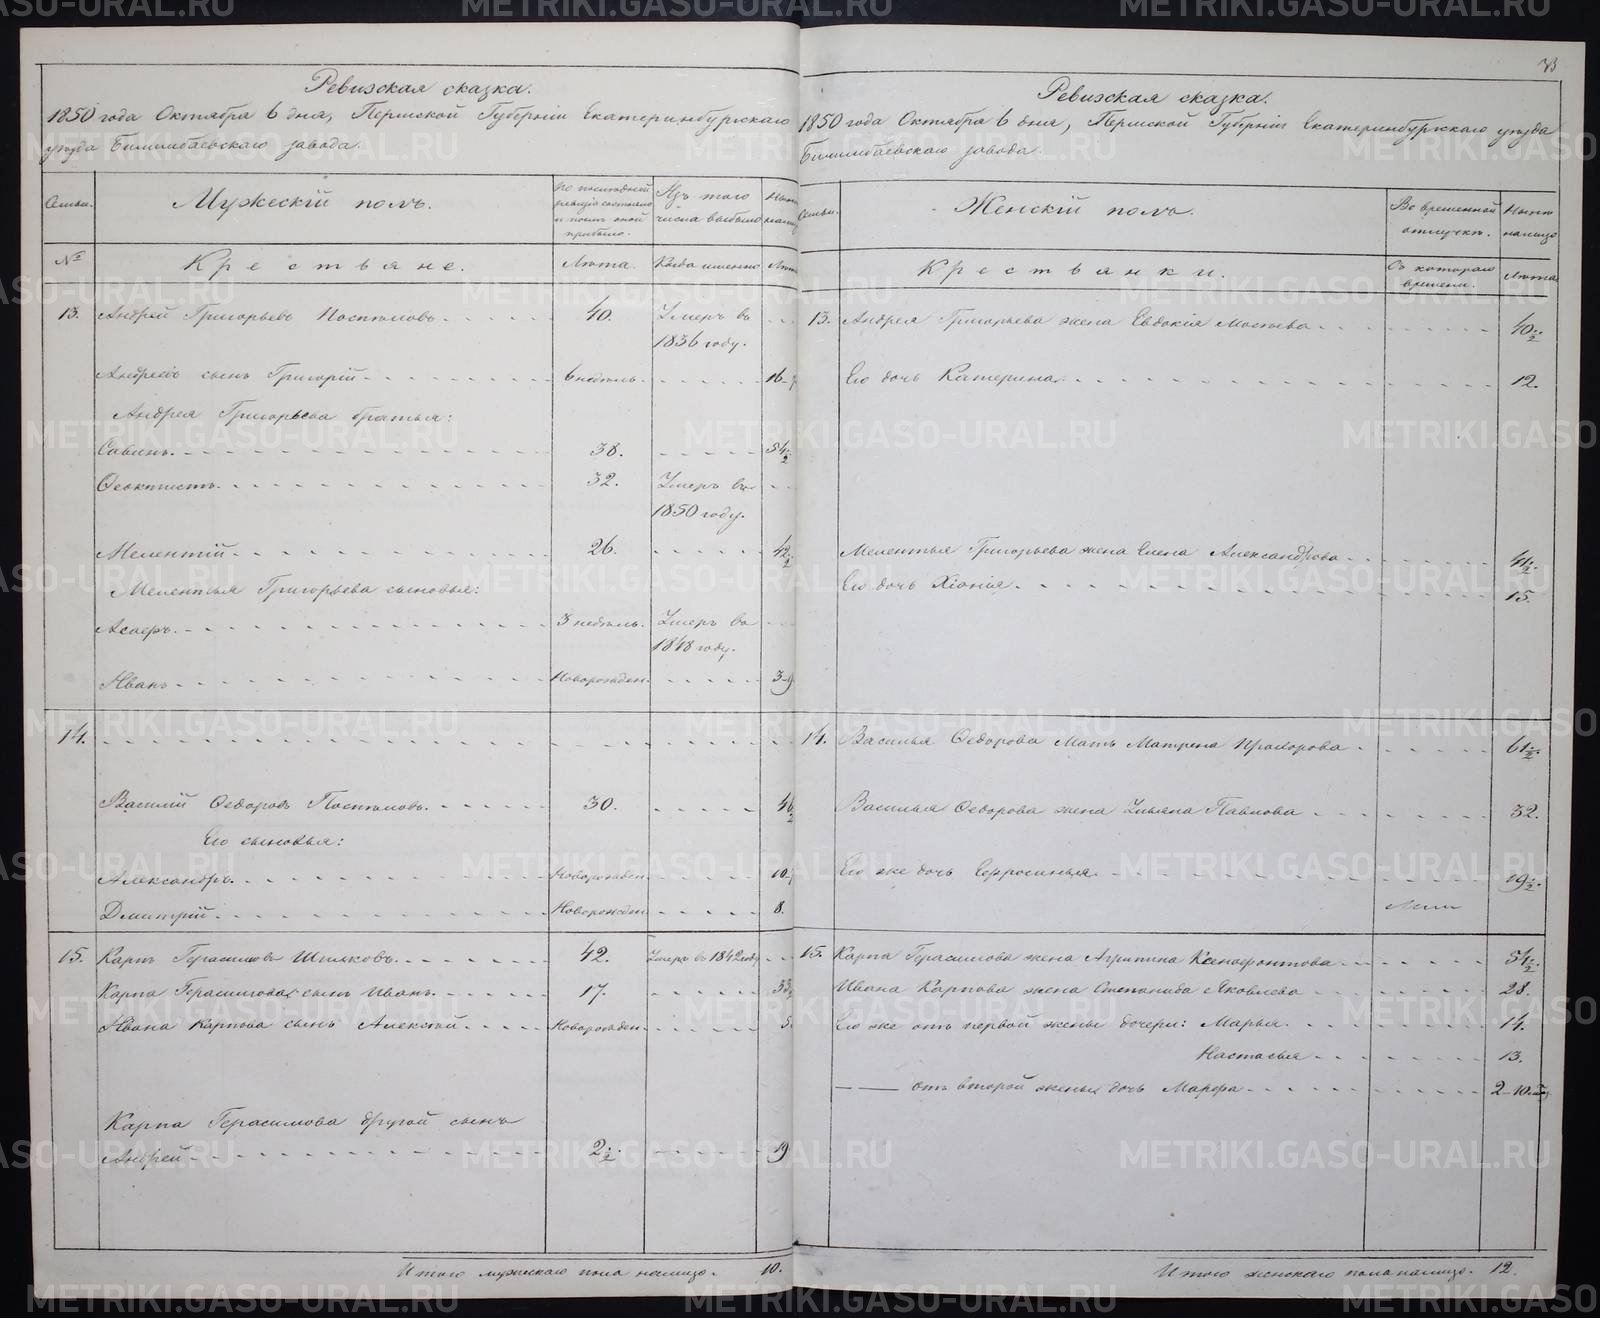 Ревизская сказка.
1850 года Октября 6 дня, Пермской Губерніи Екатеринбургскаго
уѣзда Билимбаевскаго завода.
Семьи. Мужескій полъ. По последней ревизіи состояло и послѣ оной прибыло. Изъ того числа выбыло Нынѣ налицо
№ Крестьяне. Лѣта. Когда именно Лѣта
13. Андрей Григорьевъ Постыловъ 40. Умеръ въ
1836 году.
Андреевъ сынъ Григорій 6 недѣль. 16
Андрея Григорьева братья:
Савинъ. 38. 54½
Феоктистъ. 32. Умеръ въ
1850 году.
Мелентій 26. 42½
Мелентья Григорьева сыновья:
Асаеръ. 3 недѣль. Умеръ въ
1848 году.
Иванъ Новорожден. 3
14.
Василій Федоровъ Постыловъ. 30. 46½
Его сыновья:
Александръ. Новорожден. 10
Дмитрій Новорожден. 8.
15. Карпъ Герасимовъ Шиляковъ. 42. Умеръ въ 1842 году
Карпа Герасимова сынъ Иванъ. 17. 33
Ивана Карпова сынъ Алексѣй Новорожден. 5.
Карпа Герасимова другой сынъ
Андрей 2½. 19
Итого мужескаго пола налицо. 10.
33
Ревизская сказка.
1850 года Октября 6 дня, Пермской Губерніи Екатеринбургскаго уѣзда
Билимбаевскаго завода.
Семьи. Женскій полъ. Во временной отлучкѣ. Нынѣ налицо
Крестьянки. Съ котораго времени. Лѣта
13. Андрея Григорьева жена Евдокія Мосѣева 40½
Его дочь Катерина 12.
Мелентья Григорьева жена Елена Александрова 41½.
Его дочь Хіонія. 15.
14. Василья Федорова Мать Матрена Прохорова 61½.
Василья Федорова жена Ульяна Павлова 32.
Его же дочь Ефросинья 19½.
15. Карпа Герасимова жена Агрипина Ксенофонтова 54½.
Ивана Карпова жена Степанида Яковлева 28.
Его же отъ первой жены дочери: Марья. 14.
Настасья 13.
отъ второй жены дочь Марфа 2-10.
Итого женскаго пола налицо. 12.
METRIKI.GASO-URAL.RU